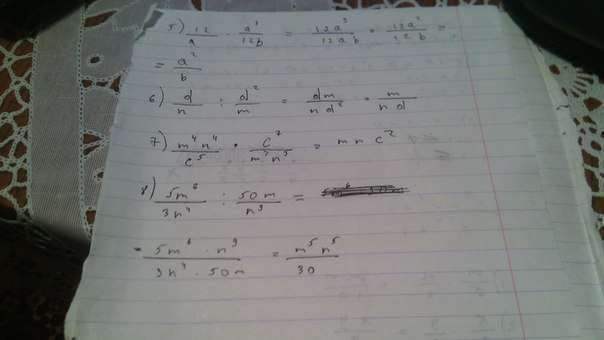 5) 12/a · a³/12b = 12a³/12ab = 12a²/12b =
= a²/b
6) d/n : d²/m = dm/nd² = m/nd
7) m⁴n⁴/c⁵ · c⁷/m³n³ = mnc²
8) 5m⁶/3n⁴ : 50m/n⁹ =
= 5m⁶ · n⁹/3n⁴ · 50m = m⁵n⁵/30